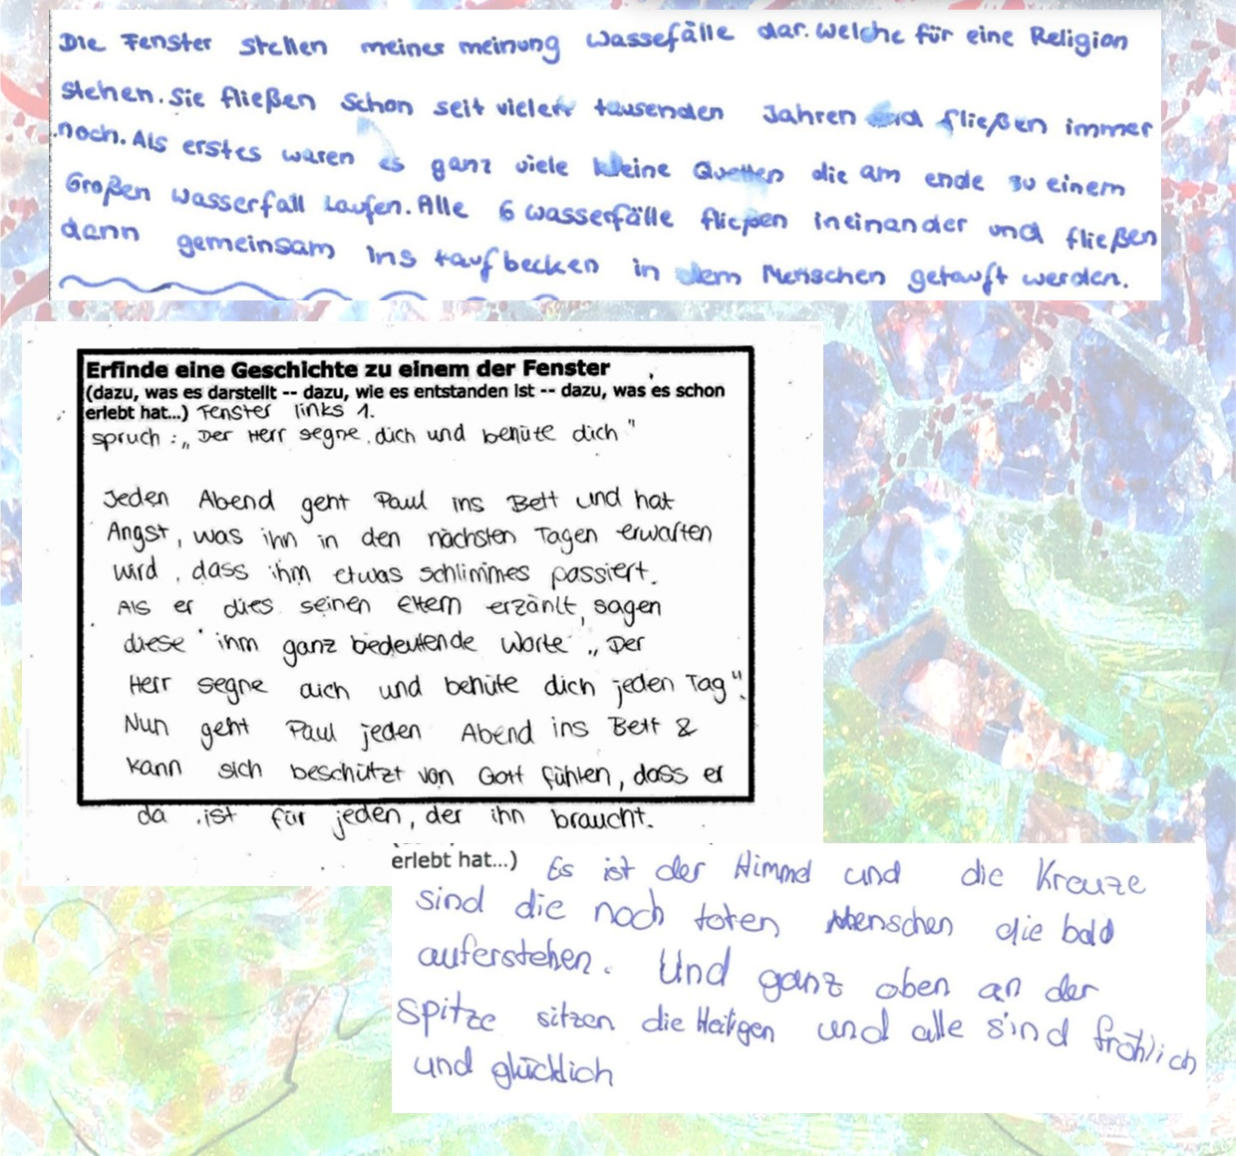 Die Fenster stellen meiner meinung Wassefälle dar. welche für eine Religion
stehen. Sie fließen schon seit vielen tausenden Jahren und fließen immer
noch. Als erstes waren es ganz viele kleine Quellen die am ende zu einem
Großen Wasserfall Laufen. Alle 6 wasserfälle fließen ineinander und fließen
dann gemeinsam ins taufbecken in dem Menschen getauft werden.
Erfinde eine Geschichte zu einem der Fenster
(dazu, was es darstellt -- dazu, wie es entstanden ist -- dazu, was es schon
erlebt hat...) Fenster links 1.
spruch: „Der Herr segne dich und behüte dich"
Jeden Abend geht Paul ins Bett und hat
Angst, was ihn in den nächsten Tagen erwarten
wird, dass ihm etwas schlimmes passiert.
Als er dies seinen Eltern erzählt, sagen
diese ihm ganz bedeutende Worte „Der
Herr segne dich und behüte dich jeden Tag".
Nun geht Paul jeden Abend ins Bett &
kann sich beschützt von Gott fühlen, dass er
da ist für jeden, der ihn braucht.
erlebt hat...) Es ist der Himmel und die Kreuze
sind die noch toten Menschen die bald
auferstehen. Und ganz oben an der
Spitze sitzen die Heiligen und alle sind fröhlich
und glücklich